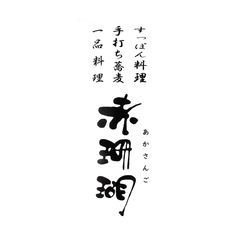 すっぽん料理
手打ち蕎麦
一品料理
あかさんご
赤珊瑚